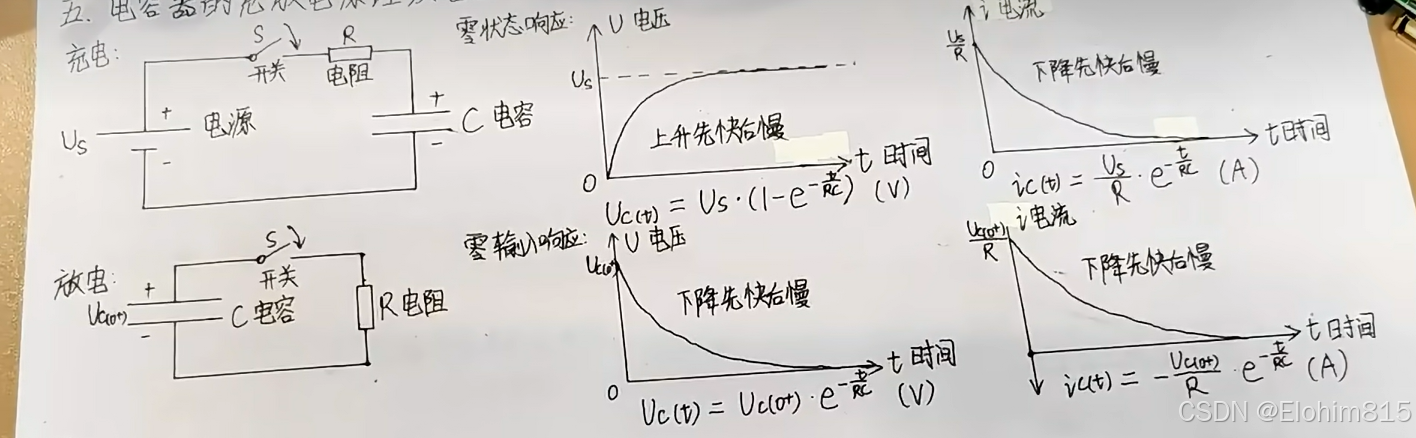 五. 电容器的充放电原理
充电:
S
开关
R
电阻
Us
+
-
电源
+
-
C 电容
零状态响应:
U 电压
Us
上升先快后慢
0
t 时间
Uc(t) = Us·(1-e^{-t/RC}) (V)
i 电流
Us/R
下降先快后慢
0
t 时间
ic(t) = Us/R · e^{-t/RC} (A)
放电:
S
开关
Uc(0+)
+
-
C 电容
R 电阻
零输入响应:
U 电压
Uc(0+)
下降先快后慢
0
t 时间
Uc(t) = Uc(0+) · e^{-t/RC} (V)
i 电流
Uc(0+)/R
下降先快后慢
t 时间
ic(t) = -Uc(0+)/R · e^{-t/RC} (A)
CSDN @Elohim815